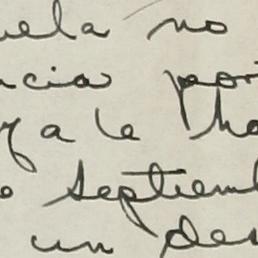 uela no
ncia por
y a le ha
o septiem
un des